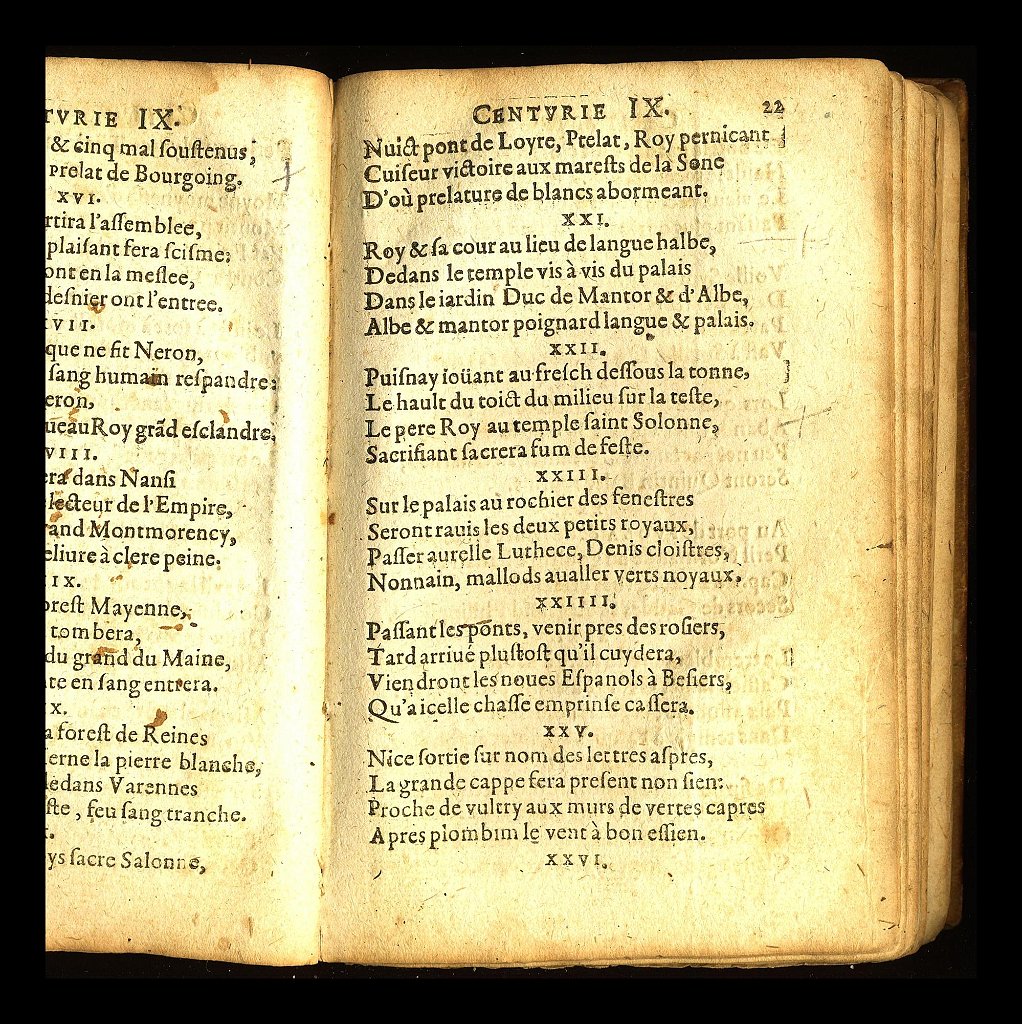 TVRIE IX.
& cinq mal souſtenus,
prelat de Bourgoing.
XVI.
rtira l'aſſemblee,
plaiſant fera ſciſme:
ont en la meſlee,
deſnier ont l'entree.
VII.
que ne fit Neron,
ſang humain reſpandre:
eron,
ueau Roy grãd eſclandre,
VIII.
era dans Nanſi
lecteur de l'Empire,
and Montmorency,
eliure à clere peine.
IX.
oreſt Mayenne,
tombera,
du grand du Maine,
te en ſang entrera.
X.
a foreſt de Reines
erne la pierre blanche,
dedans Varennes
ſte, feu ſang tranche.
ys ſacre Salonne,
CENTVRIE IX. 22
Nuict pont de Loyre, Prelat, Roy pernicant
Cuiſeur victoire aux mareſts de la Sone
D'où prelature de blancs abormeant.
XXI.
Roy & ſa cour au lieu de langue halbe,
Dedans le temple vis à vis du palais
Dans le iardin Duc de Mantor & d'Albe,
Albe & mantor poignard langue & palais.
XXII.
Puiſnay ioüant au freſch deſſous la tonne,
Le hault du toict du milieu ſur la teſte,
Le pere Roy au temple ſaint Solonne,
Sacrifiant ſacrera fum de feſte.
XXIII.
Sur le palais au rochier des feneſtres
Seront rauis les deux petits royaux,
Paſſer aurelle Luthece, Denis cloiſtres,
Nonnain, mallods aualler verts noyaux.
XXIIII.
Paſſant les ponts, venir pres des roſiers,
Tard arriué pluſtoſt qu'il cuydera,
Viendront les noues Eſpanols à Beſiers,
Qu'a icelle chaſſe emprinſe caſſera.
XXV.
Nice ſortie ſur nom des lettres aſpres,
La grande cappe fera preſent non ſien:
Proche de vultry aux murs de vertes capres
Apres plombim le vent à bon eſſien.
XXVI.